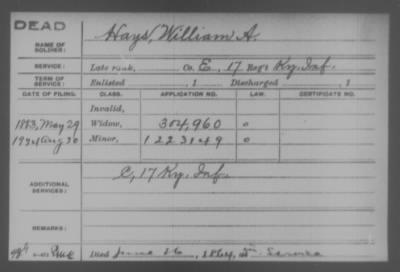 DEAD
NAME OF SOLDIER: Hays, William A.
SERVICE: Late rank, Co. E, 17 Reg't Ky. Inf.
TERM OF SERVICE: Enlisted , 1 Discharged , 1
DATE OF FILING. CLASS. APPLICATION NO. LAW. CERTIFICATE NO.
Invalid,
1883, May 29 Widow, 304,960 o
Aug 30 Minor, 1223149 o
ADDITIONAL SERVICES: C, 17 Ky. Inf.
REMARKS:
Died June 26, 1864, Service